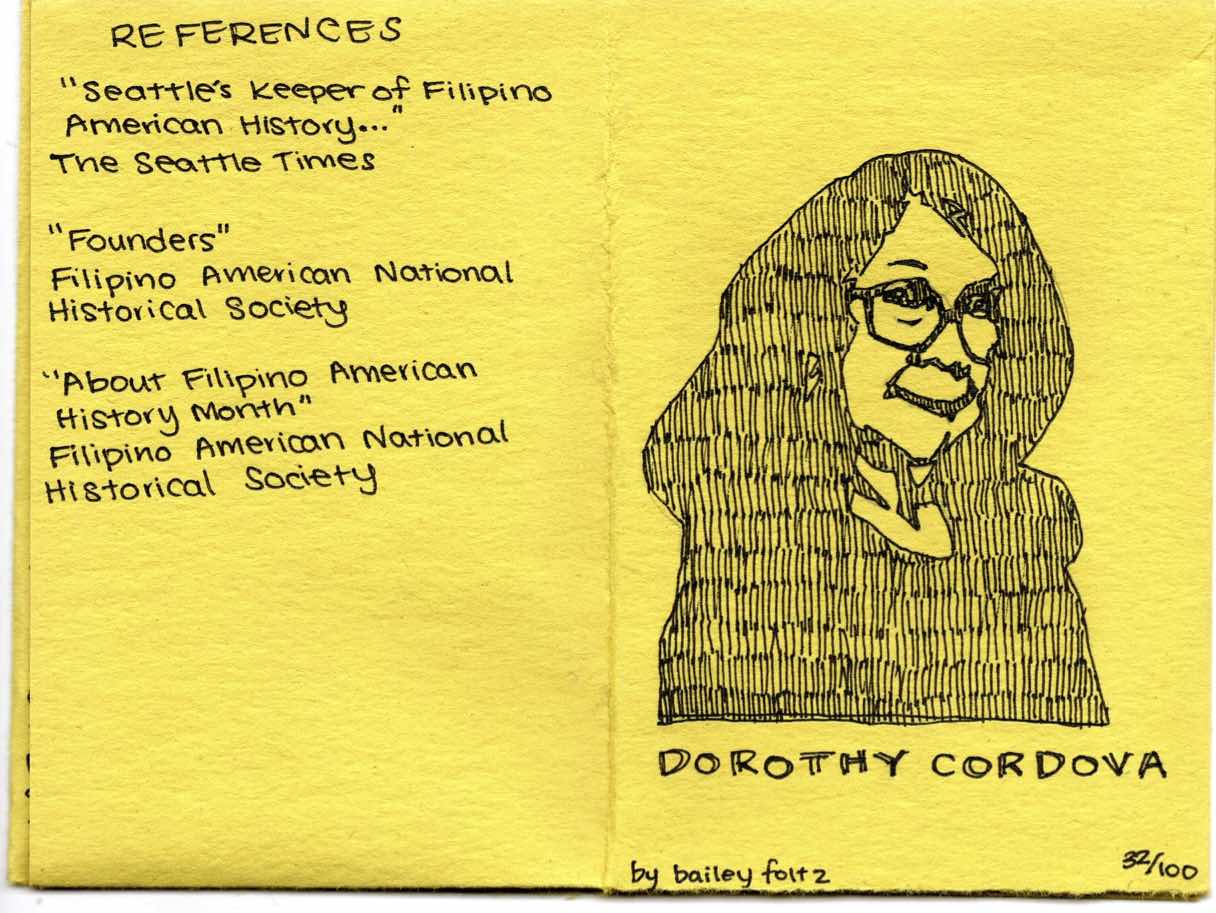 REFERENCES
"Seattle's Keeper of Filipino
American History..."
The Seattle Times
"Founders"
Filipino American National
Historical Society
"About Filipino American
History Month"
Filipino American National
Historical Society
DOROTHY CORDOVA
by bailey foltz
32/100